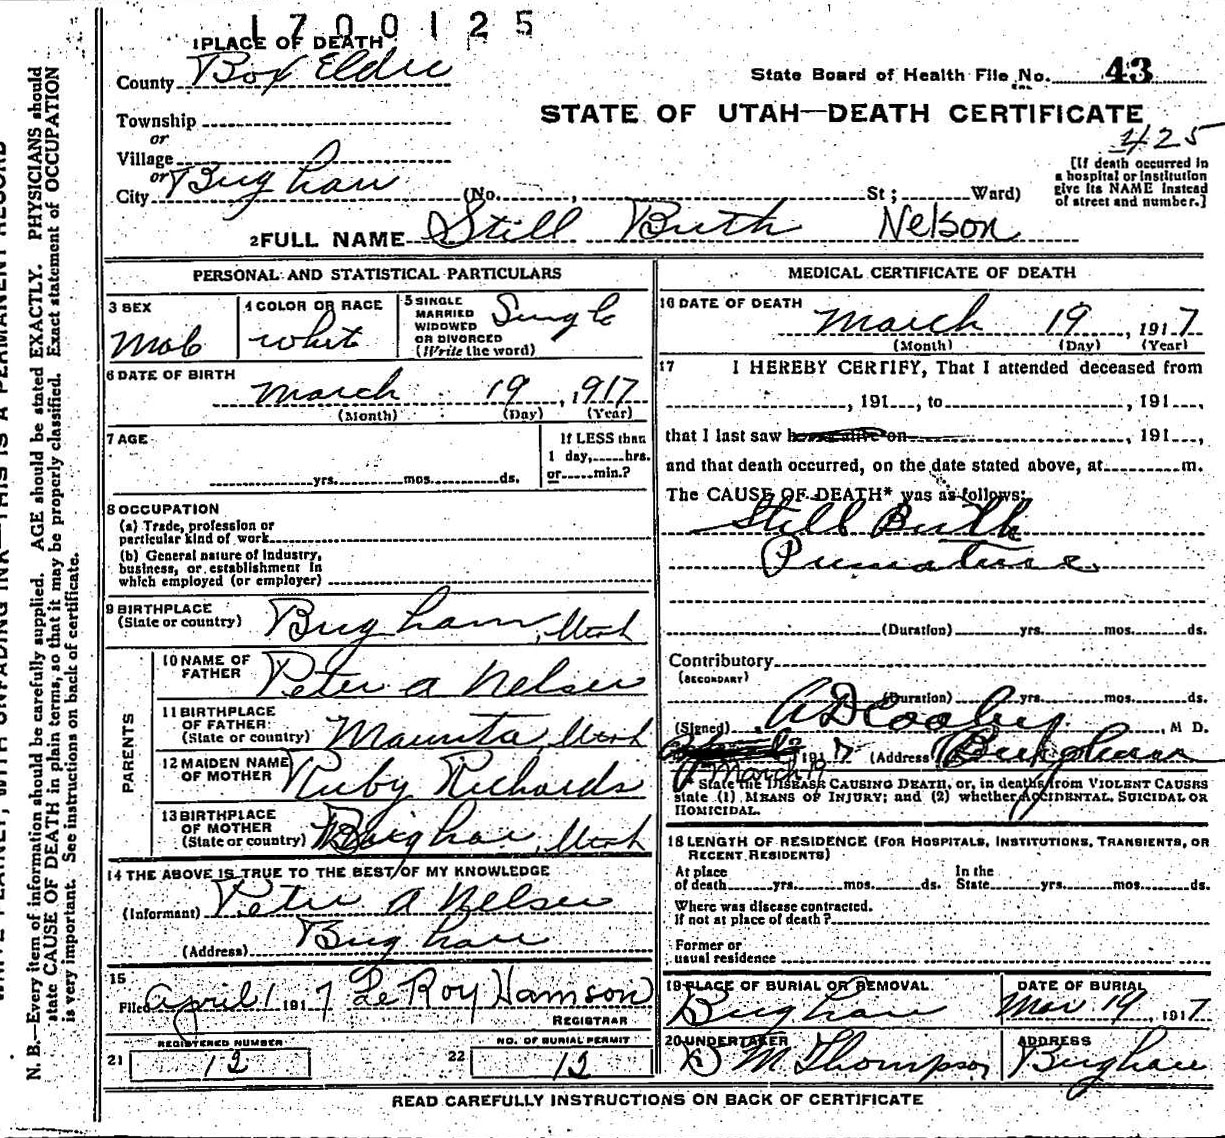 1700125
1 PLACE OF DEATH
County Box Elder
State Board of Health File No. 43
STATE OF UTAH—DEATH CERTIFICATE
Township
or
Village
or
City Brigham (No. , St; Ward)
425
[If death occurred in
a hospital or institution
give its NAME instead
of street and number.]
2 FULL NAME Still Birth Nelson
PERSONAL AND STATISTICAL PARTICULARS
3 SEX
4 COLOR OR RACE
white
5 SINGLE
MARRIED
WIDOWED
OR DIVORCED
(Write the word)
Single
6 DATE OF BIRTH
March 19, 917
(Month) (Day) (Year)
7 AGE
yrs. mos. ds.
If LESS than
1 day, hrs.
or min.?
8 OCCUPATION
(a) Trade, profession or
particular kind of work
(b) General nature of Industry,
business, or establishment in
which employed (or employer)
9 BIRTHPLACE
(State or country) Brigham, Utah
PARENTS
10 NAME OF
FATHER Peter A Nelsen
11 BIRTHPLACE
OF FATHER:
(State or country) Utah
12 MAIDEN NAME
OF MOTHER Ruby Richards
13 BIRTHPLACE
OF MOTHER
(State or country) Brigham, Utah
14 THE ABOVE IS TRUE TO THE BEST OF MY KNOWLEDGE
(Informant) Peter A Nelsen
(Address) Brigham
15
Filed April 1 1917 LeRoy Hamson
REGISTRAR
21 REGISTERED NUMBER
12
22 NO. OF BURIAL PERMIT
12
MEDICAL CERTIFICATE OF DEATH
16 DATE OF DEATH
March 19, 1917
(Month) (Day) (Year)
17 I HEREBY CERTIFY, That I attended deceased from
, 191 , to , 191 ,
that I last saw h alive on , 191 ,
and that death occurred, on the date stated above, at m.
The CAUSE OF DEATH* was as follows:
Still Birth
Premature
(Duration) yrs. mos. ds.
Contributory
(SECONDARY)
(Duration) yrs. mos. ds.
(Signed) A D Cooley, M D.
1917 (Address) Brigham
March
* State the DISEASE CAUSING DEATH, or, in deaths from VIOLENT CAUSES
state (1) MEANS OF INJURY; and (2) whether ACCIDENTAL, SUICIDAL OR
HOMICIDAL.
18 LENGTH OF RESIDENCE (FOR HOSPITALS, INSTITUTIONS, TRANSIENTS, OR
RECENT RESIDENTS)
At place
of death yrs. mos. ds.
In the
State yrs. mos. ds.
Where was disease contracted.
If not at place of death?
Former or
usual residence
19 PLACE OF BURIAL OR REMOVAL
Brigham
DATE OF BURIAL
Mar 19, 1917
20 UNDERTAKER
M Thompson
ADDRESS
Brigham
READ CAREFULLY INSTRUCTIONS ON BACK OF CERTIFICATE
N. B.—Every item of information should be carefully supplied. AGE should be stated EXACTLY. PHYSICIANS should
state CAUSE OF DEATH in plain terms, so that it may be properly classified. Exact statement of OCCUPATION
is very important. See instructions on back of certificate.